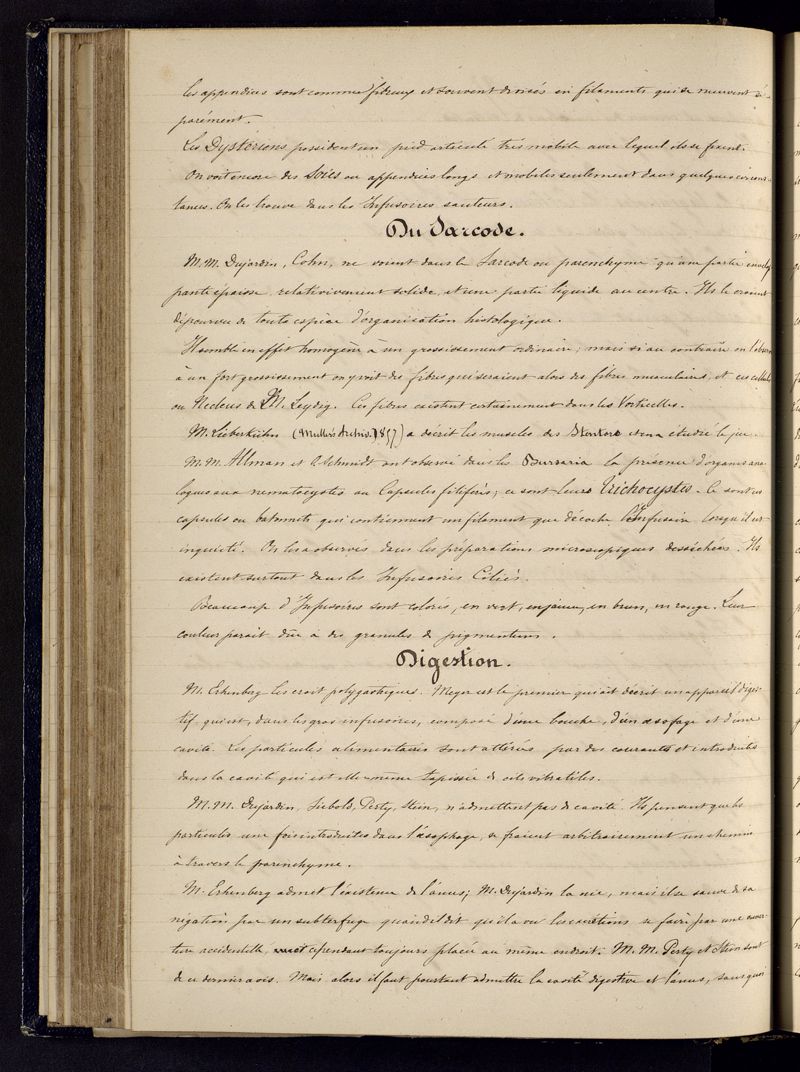 les appendices sont comme fibreux et souvent divisés en filaments qui se meuvent sé-
parément.
Les Dystériens possèdent un pied articulé très mobile avec lequel ils se fixent.
On voit encore des Soies ou appendices longs et mobiles seulement dans quelques circons-
tances. On les trouve dans les Infusoires sauteurs.
Du Sarcode.
M.M. Dujardin, Cohn, ne voient dans le Sarcode ou parenchyme qu'une partie envelop
pante épaisse, relativement solide, et une partie liquide au centre. Ils le croient
dépourvu de toute espèce d'organisation histologique.
Il semble en effet homogène à un grossissement ordinaire; mais si au contraire on l'observe
à un fort grossissement on y voit des fibres qui seraient alors des fibres musculaires, et ces cellules
ou Nucleus de M. Leydig. Ces fibres existent certainement dans les Vorticelles.
M. Lieberkühn (Muller's Archiv. 1857) a décrit les muscles des Stentors et en a étudié le jeu.
M.M. Allman et O. Schmidt ont observé dans les Bursaria la présence d'organes ana-
logues aux nematocystes ou Capsules filifères; ce sont leurs Trichocystes. Ce sont des
capsules ou batonnets qui contiennent un filament que décoche l'Infusoire lorsqu'il est
inquiété. On les a observés dans les préparations microscopiques desséchées. Ils
existent surtout dans les Infusoires Ciliés.
Beaucoup d'Infusoires sont colorés, en vert, en jaune, en brun, en rouge. Leur
couleur parait due à des granules de pigmentum.
Digestion.
M. Erhenberg les croit polygastriques. Meyer est le premier qui ait décrit un appareil diges-
tif qui est, dans les gros infusoires, composé d'une bouche, d'un œsofage et d'une
cavité. Les particules alimentaires sont attirées par des courants et introduites
dans la cavité qui est elle-même tapissée de cils vibratiles.
M.M. Dujardin, Siebold, Perty, Stein, n'admettent pas de cavité. Ils pensent que les
particules une fois introduites dans l'œsophage, se fraient arbitrairement un chemin
à travers le parenchyme.
M. Erhenberg admet l'existence de l'anus; M. Dujardin la nie, mais il se sauve de sa
négation par un subterfuge quand il dit qu'il a vu les excrétions se faire par une ouver-
ture accidentelle, cependant toujours placée au même endroit. M.M. Perty et Stein sont
de ce dernier avis. Mais alors il faut pourtant admettre la cavité digestive et l'anus, sans quoi